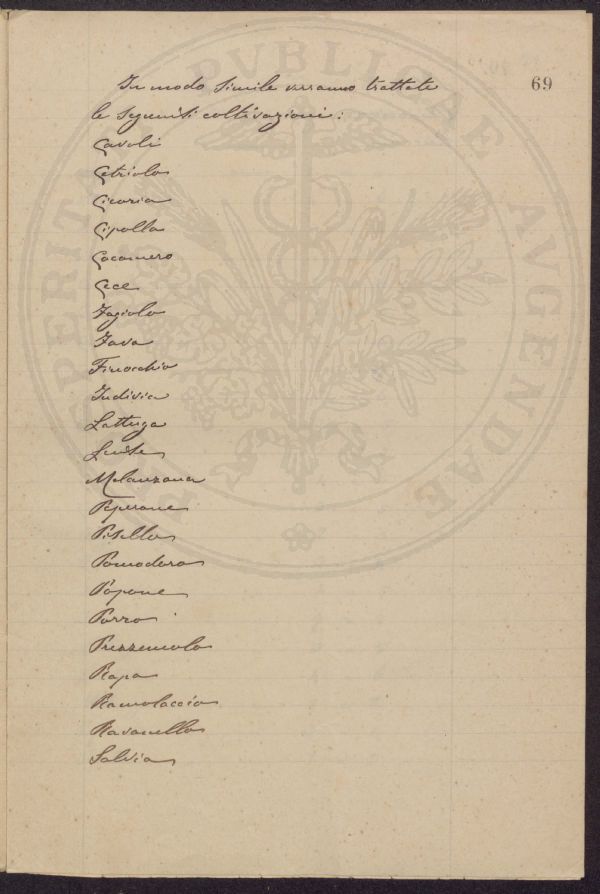 69
In modo simile verranno trattate
le seguenti coltivazioni:
Cavoli
Cetriolo
Cicoria
Cipolla
Cocomero
Cece
Fagiolo
Fava
Finocchio
Indivia
Lattuga
Lente
Melanzana
Peperone
Pisello
Pomodoro
Popone
Porro
Prezzemolo
Rapa
Ramolaccio
Ravanello
Salvia
PVBLICAE
AVGENDAE
PROSPERITATI